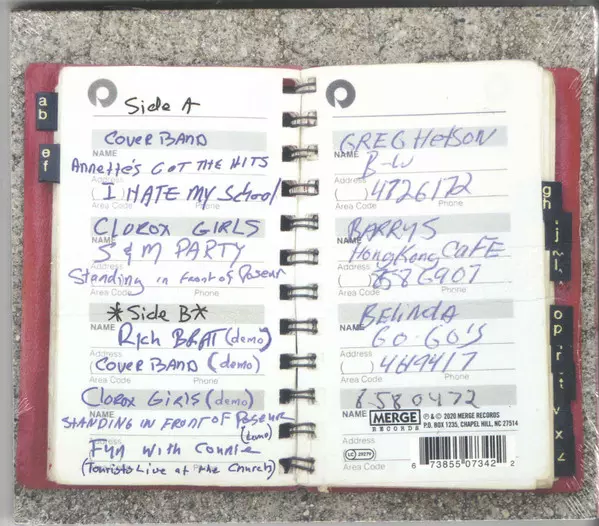 Side A
COVER BAND
NAME
ANNETTE'S GOT THE HITS
Address
I HATE MY School
Area Code Phone
CLOROX GIRLS
NAME
S & M PARTY
Address
Standing in front of Poseur
Area Code Phone
*Side B*
NAME
Rich BRAT (demo)
Address
COVER BAND (demo)
Area Code Phone
Clorox Girls (demo)
NAME
STANDING IN FRONT OF Poseur
(demo)
Address
Fun with Connie
(Tourists Live at the Church)
Area Code
GREG HETSON
NAME
B-W
Address
( ) 4726172
Area Code Phone
BARRYS
NAME
HongKong CAFE
Address
( ) 8586907
Area Code Phone
BELINDA
NAME
GO-GO'S
Address
( ) 4694417
Area Code Phone
8580472
NAME
MERGE
RECORDS
℗ & © 2020 MERGE RECORDS
P.O. BOX 1235, CHAPEL HILL, NC 27514
Address
LC 29279
Area Code
6 73855 07342 2
a
b
e
f
g
h
i
j
k
o
p
r
t
v
x
z